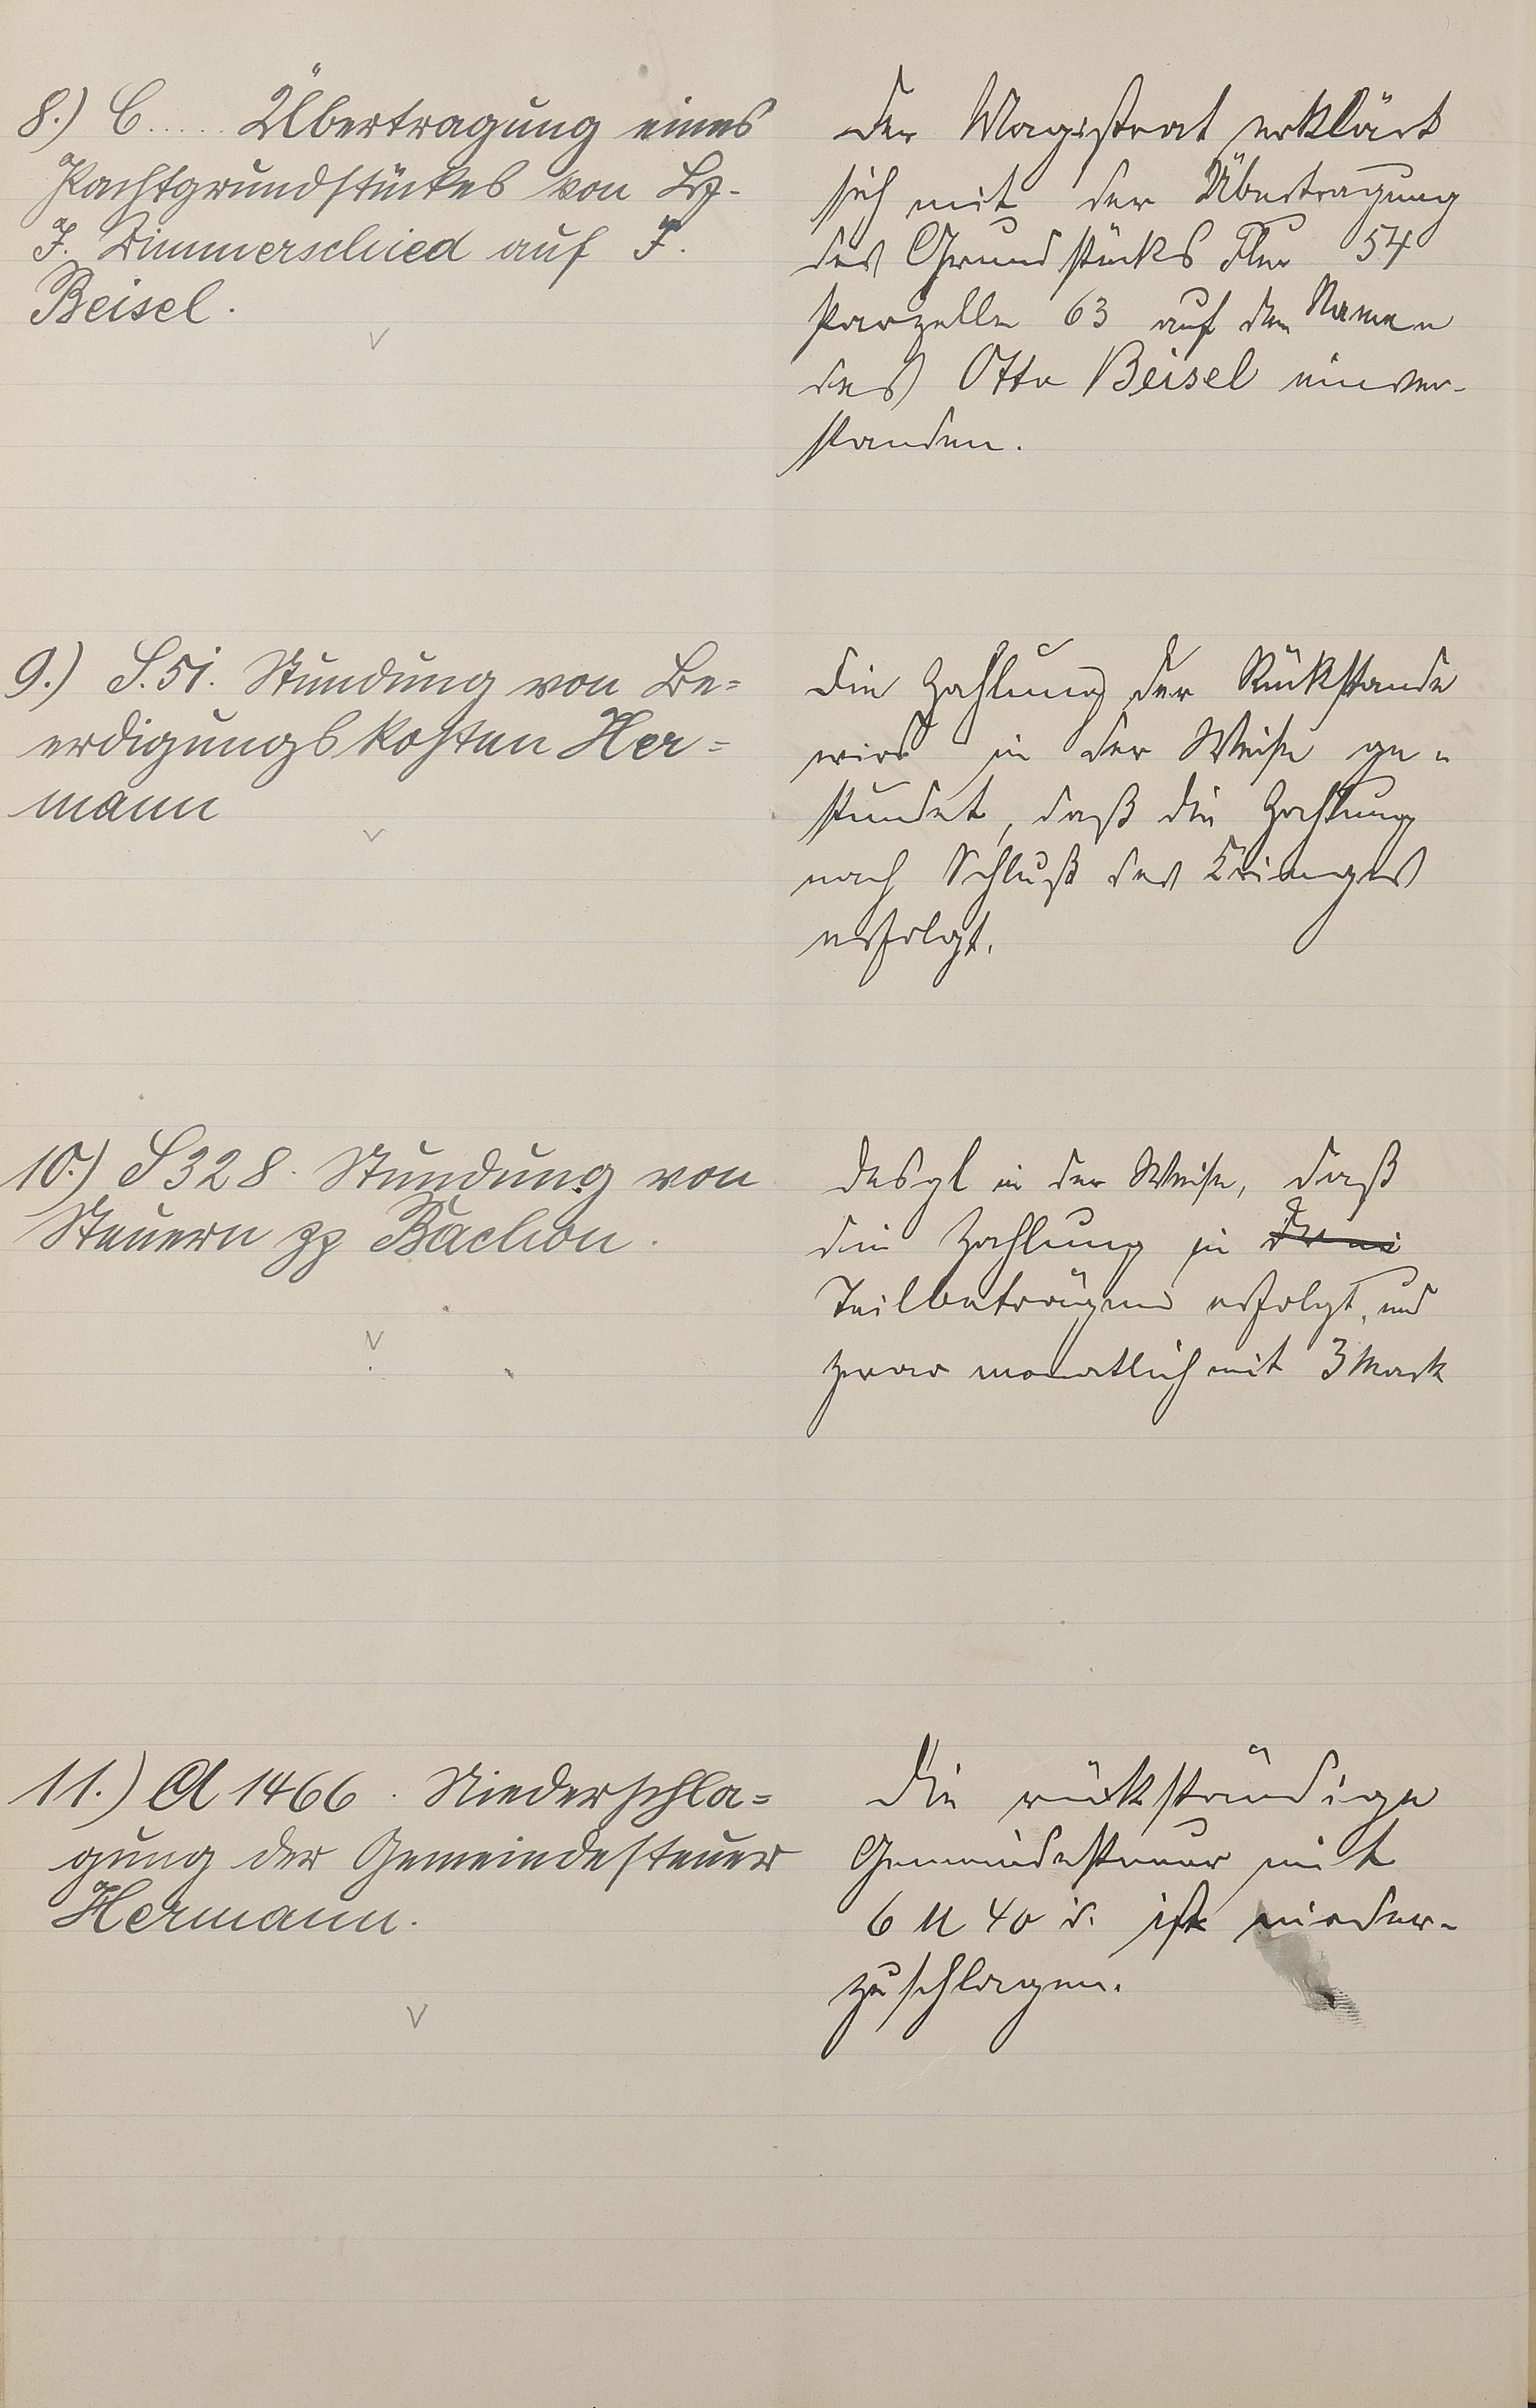 8.) C..... Übertragung eines
Pachtgrundstückes von Lz.
F. Dimmerschied auf F.
Beisel.
Der Magistrat erklärt
sich mit der Übertragung
des Grundstücks Flur 54
Parzelle 63 auf den Namen
des Otto Beisel einver-
standen.
9.) S. 51. Stundung von Be=
erdigungskosten Her=
mann
Die Zahlung der Rückstände
wird in der Weise ge=
stundet, daß die Zahlung
nach Schluß des Krieges
erfolgt.
10.) S 328. Stundung von
Steuern pp Bachon.
Desgl in der Weise, daß
die Zahlung in Drei
Teilbeträgen erfolgt, und
zwar monatlich mit 3 Mark
11.) A 1466. Niederschla=
gung der Gemeindesteuer
Hermann.
Die rückständige
Gemeindesteuer mit
6 M 40 d. ist nieder-
zuschlagen.